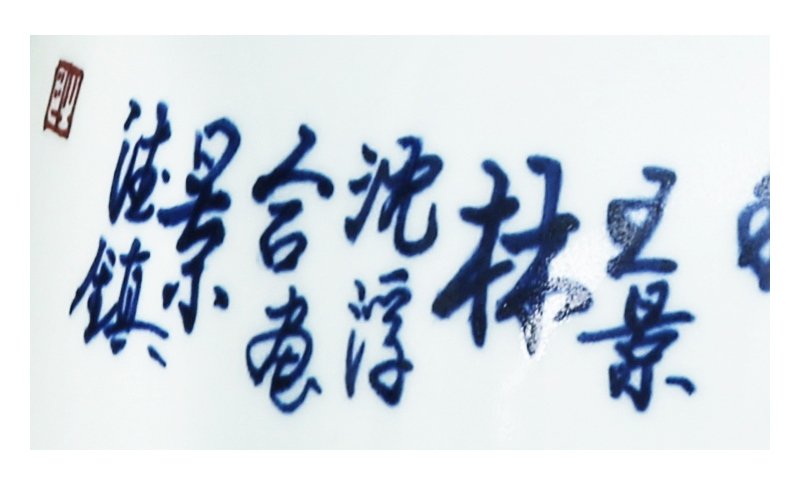 王景
林
沈浮
合画
景
德镇